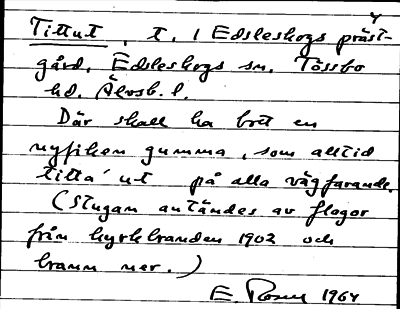 4
Tittut, t. i Edsleskogs präst-
gård, Edsleskogs sn. Tössbo
hd. Älvsb. l.
Där skall ha bott en
nyfiken gumma, som alltid
titta' ut på alla vägfarande.
(Stugan antändes av flagor
från kyrkbranden 1902 och
brann ner.)
E. 1964